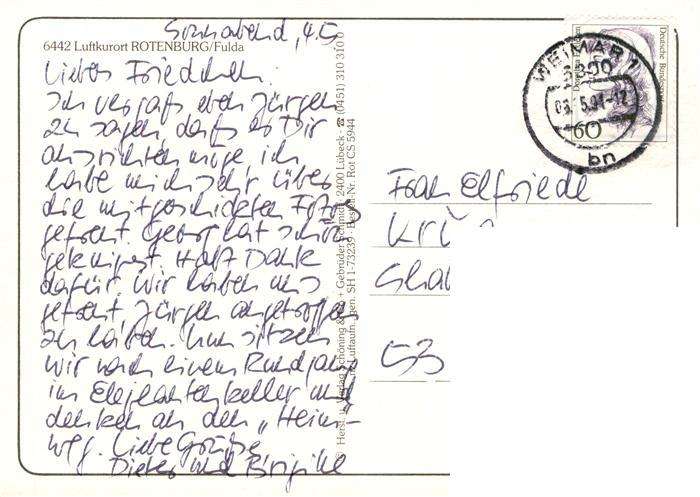 Sonnabend, 4.5.
6442 Luftkurort ROTENBURG/Fulda
Liebes Friedchen.
Ich vergaß eben Jürgen
zu sagen, daß er Dir
ausrichten möge, ich
habe mich sehr über
die mitgeschickten Fotos
gefreut. Georg hat schön
geknipst. Hab Dank
dafür. Wir haben uns
gefreut, Jürgen angetroffen
zu haben. Nun sitzen
wir nach einem Rundgang
im Elephantenkeller und
denken an den „Heim-
weg. Liebe Grüße
Dieter und Brigitte
Herst. u. Verlag Schöning & Co + Gebrüder Schmidt, 2400 Lübeck · ☎ (0451) 310 310
Luftaufn. gen. SH 1-73239 · Bestell-Nr. Rot CS 5944
WEIMAR 1
5300
bn
60
Deutsche Bundespost
Frau Elfriede
Kr
53